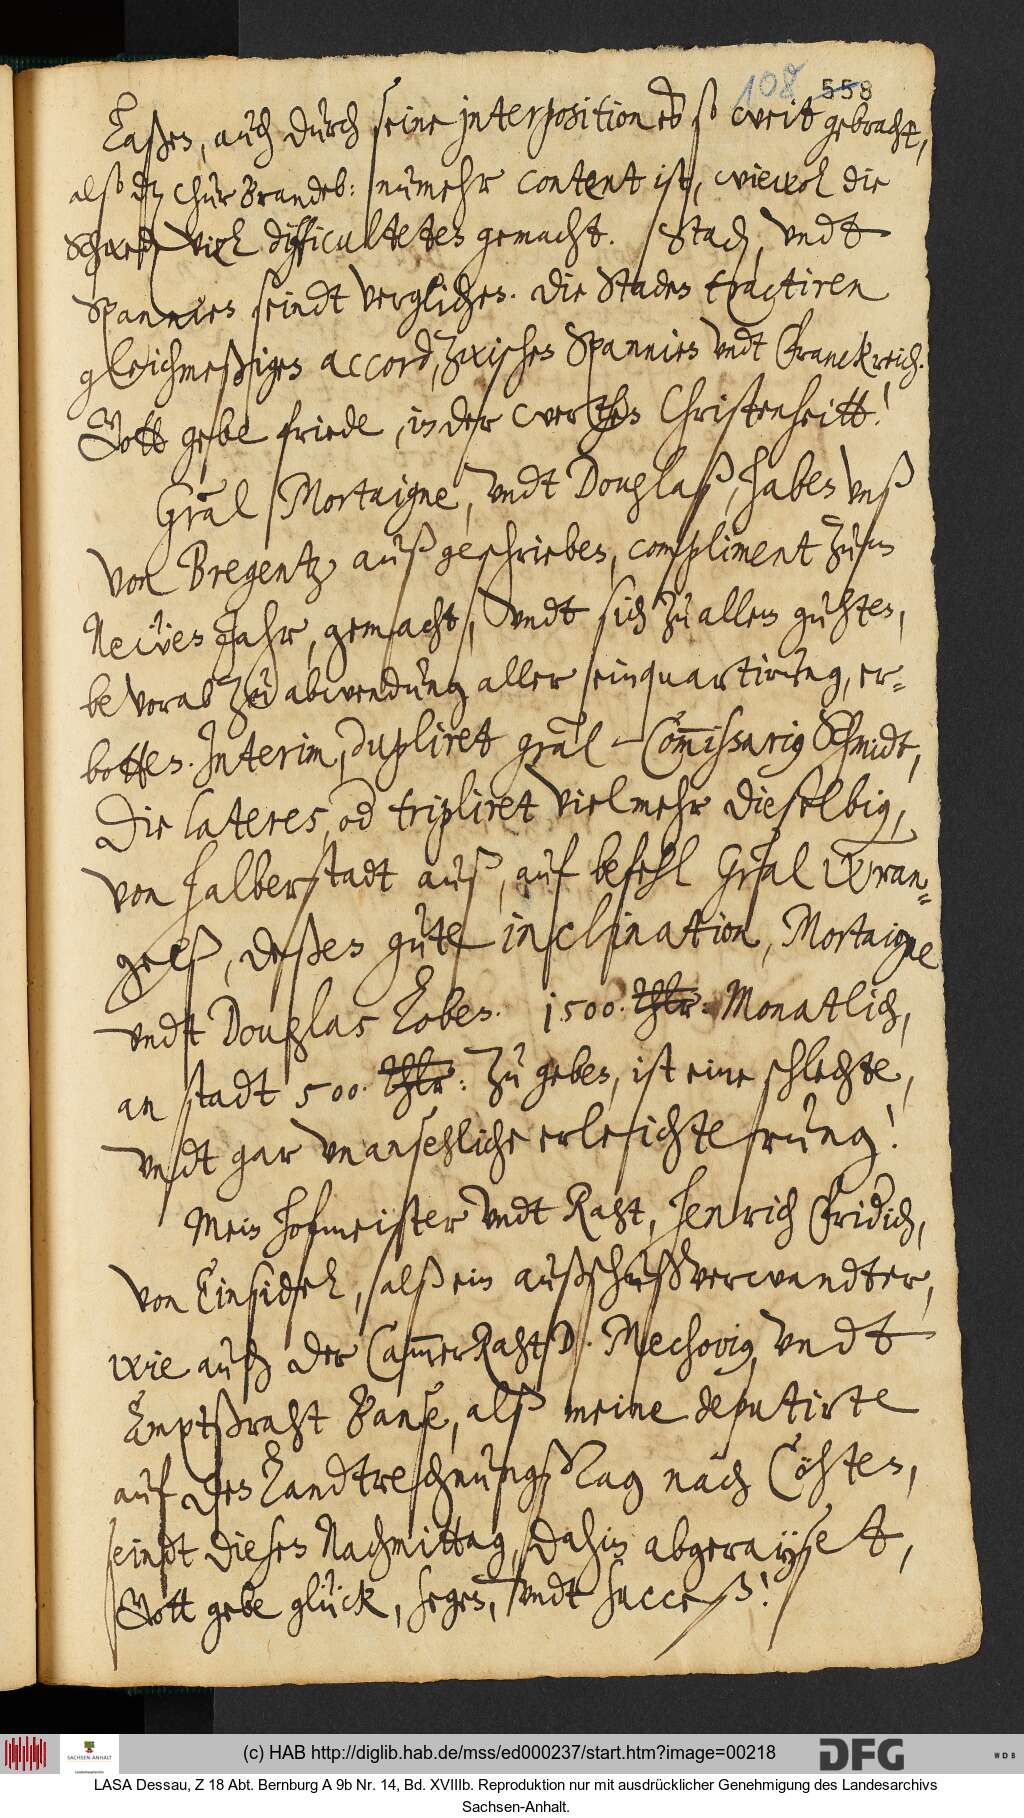 108 558
Laßen, auch durch seine interposition es so weit gebracht,
alß dz Chur Brandeb: numehr content ist, wiewol die
Schwed: viel difficulteten gemacht. Stad, undt
Spannien seindt verglichen. Die Staden tractiren
gleichmeßigen accord, zwischen Spannien undt Franckreich.
Gott gebe friede, in der werthen Christenheitt!
Gräl Mortaigne, undt Douglaß, haben unß
von Bregentz auß geschrieben, compliment zum
Neẅen Jahr, gemacht, undt sich zu allem guhten,
bevorab zu abwendung aller einquartirung, er-
botten. Interim, dupliret Gräl Commissarius Schmidt,
Die lateres, od tripliret vielmehr dieselbig,
von Halberstadt auß, auf befehl Gräl Wran-
gelß, deßen gute inclination, Mortaigne
undt Douglas loben. 1500. Thlr: Monatlich,
an stadt 500. Thlr: zu geben, ist eine schlechte,
undt gar unansehliche erleichterung!
Mein hofmeister undt Raht, Henrich Fridich,
von Einsidel, alß ein außschußverwandter,
wie auch der CammerRaht D. Mechovius undt
Amptßraht Banse, alß meine deputirte
auf den LandtrechnungsTag nach Cöhten,
seindt diesen Nachmittag, dahin abgerayset,
Gott gebe glück, segen, undt success!
(c) HAB http://diglib.hab.de/mss/ed000237/start.htm?image=00218
SACHSEN-ANHALT
DFG
WDB
LASA Dessau, Z 18 Abt. Bernburg A 9b Nr. 14, Bd. XVIIIb. Reproduktion nur mit ausdrücklicher Genehmigung des Landesarchivs
Sachsen-Anhalt.